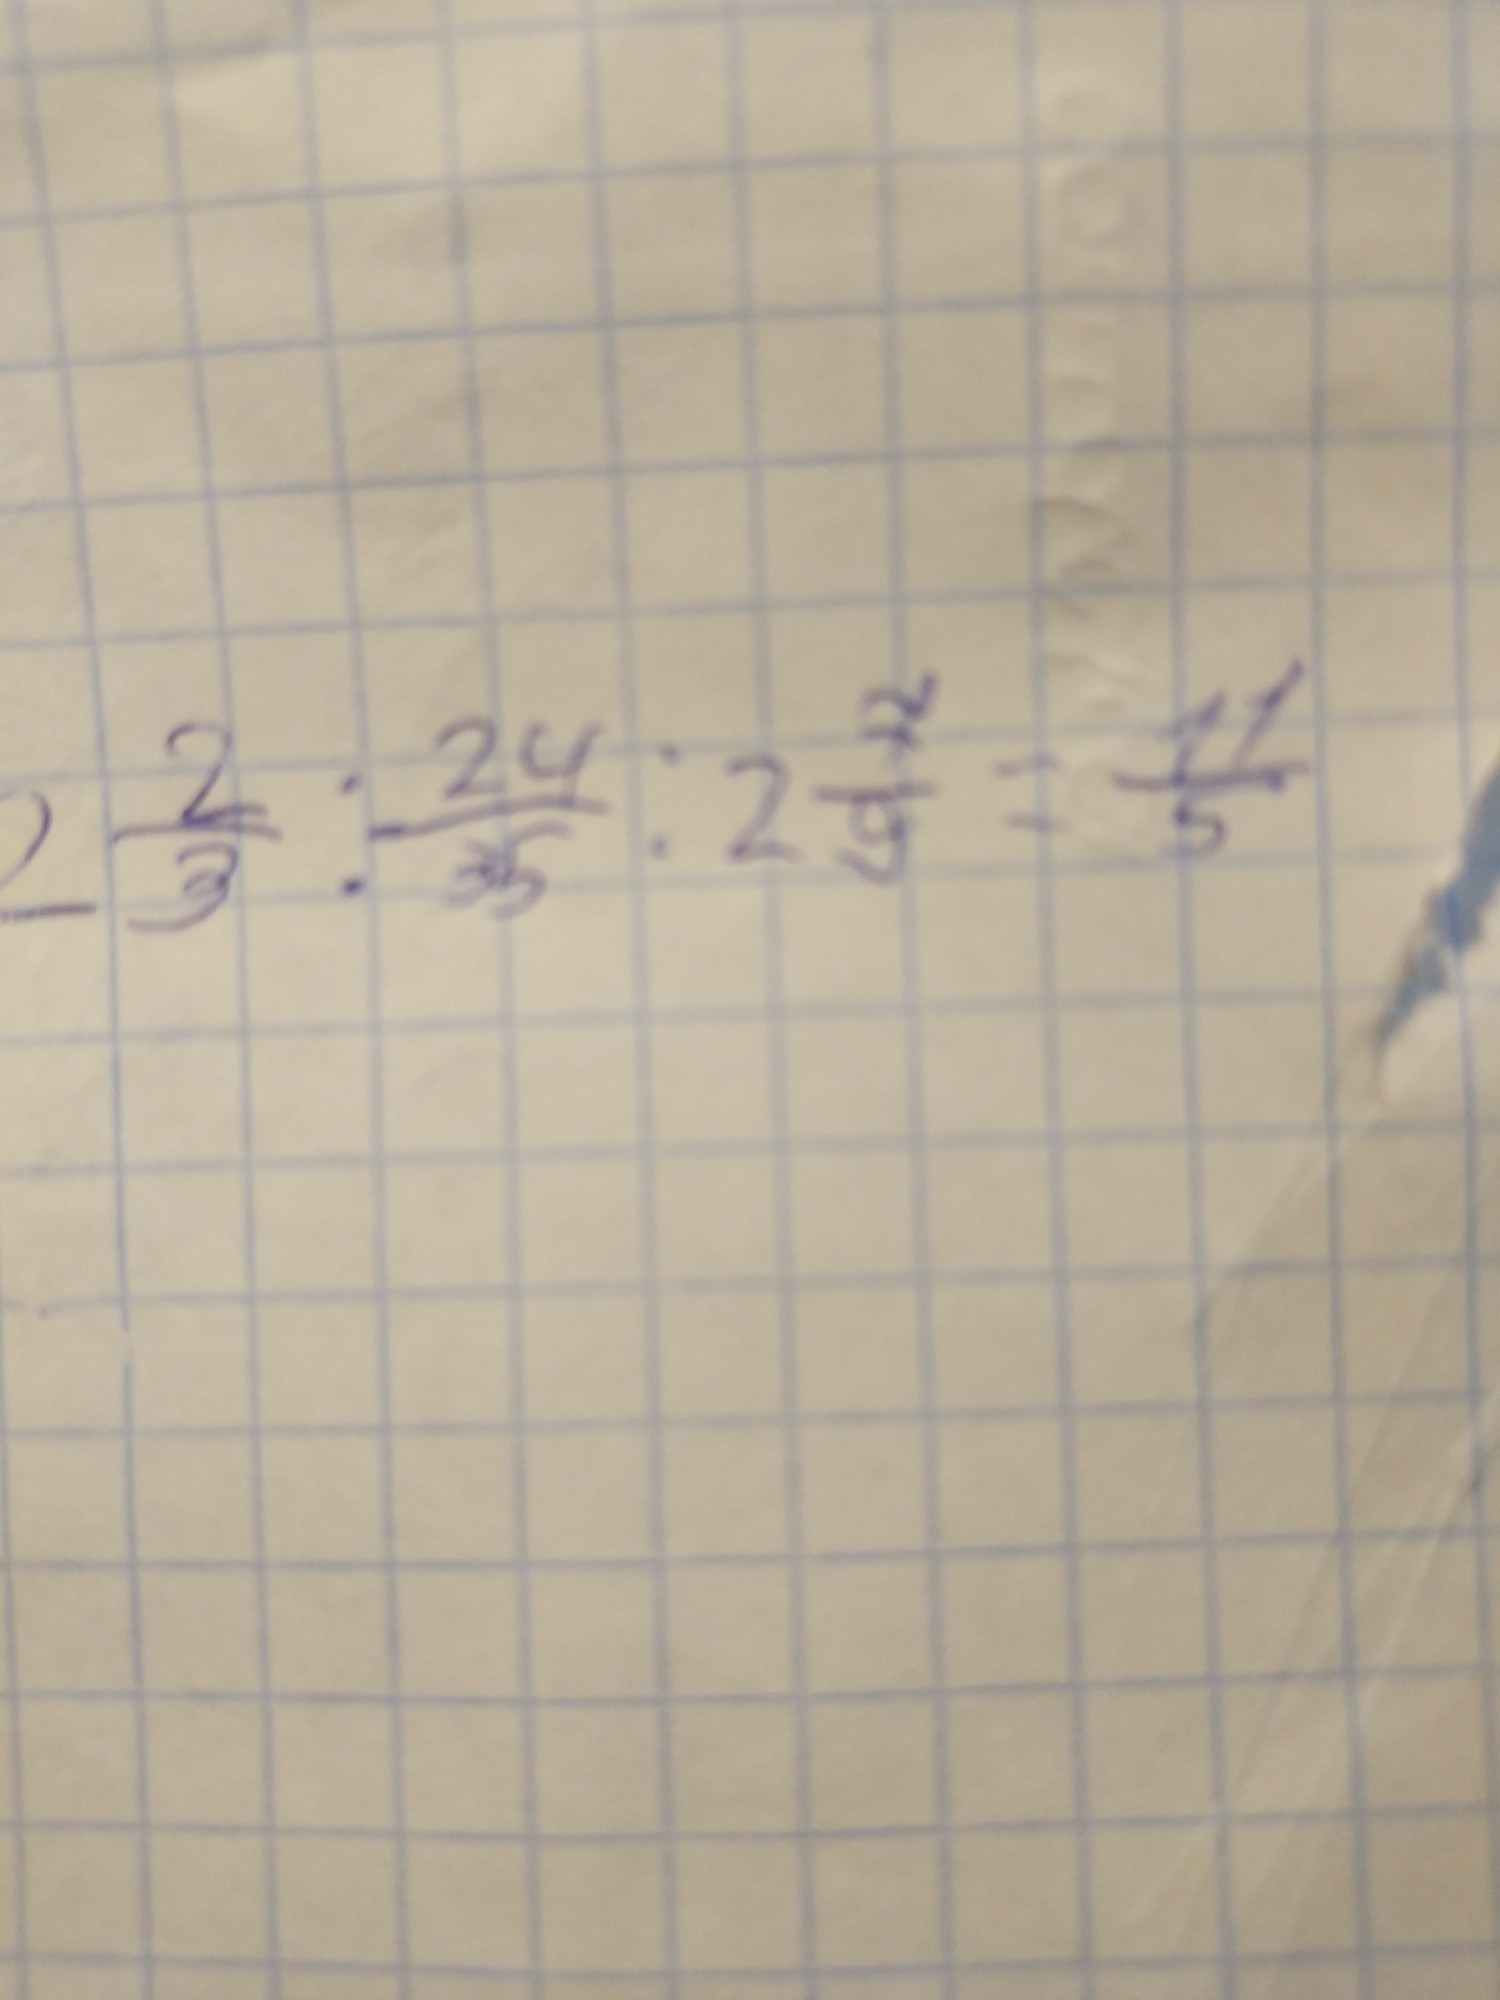 2 2/3 : 24/35 : 2 7/9 = 11/5